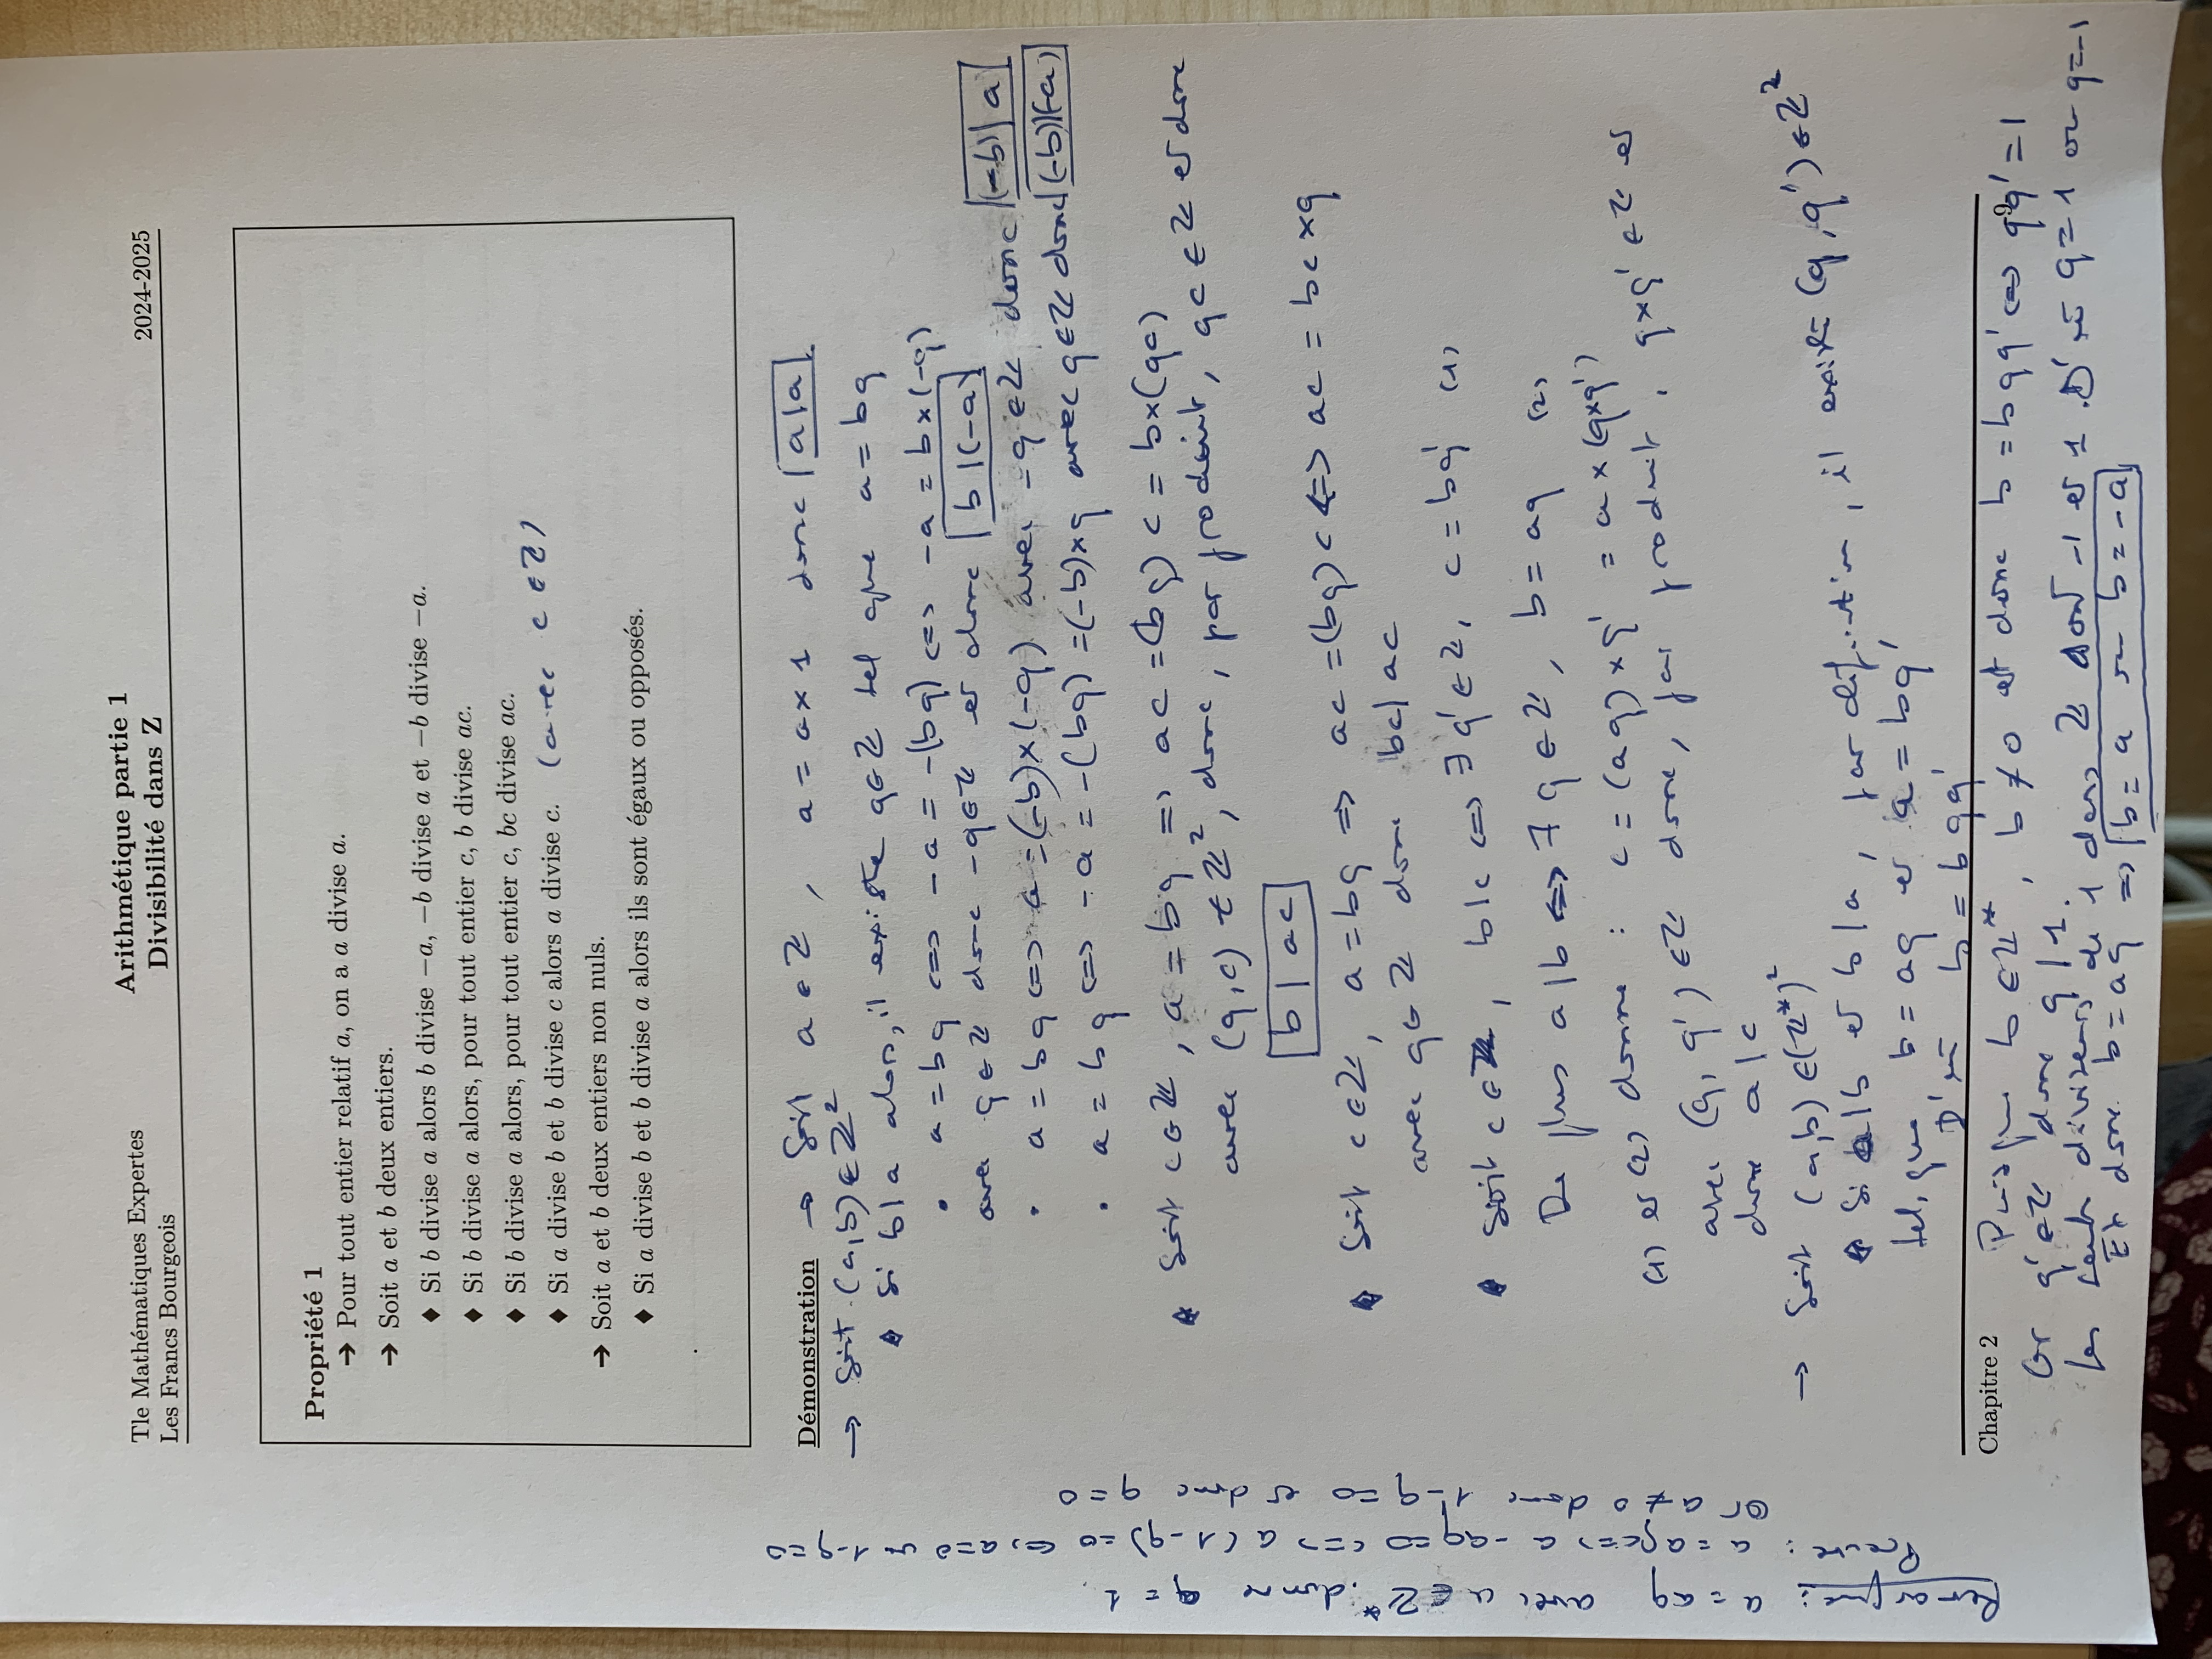 Tle Mathématiques Expertes
Les Francs Bourgeois
Arithmétique partie 1
Divisibilité dans Z
2024-2025
Propriété 1
➔ Pour tout entier relatif a, on a a divise a.
➔ Soit a et b deux entiers.
♦ Si b divise a alors b divise −a, −b divise a et −b divise −a.
♦ Si b divise a alors, pour tout entier c, b divise ac.
♦ Si b divise a alors, pour tout entier c, bc divise ac.
♦ Si a divise b et b divise c alors a divise c. (avec c ∈ Z)
➔ Soit a et b deux entiers non nuls.
♦ Si a divise b et b divise a alors ils sont égaux ou opposés.
Démonstration → Soit a ∈ Z, a = a × 1 donc a|a
→ Soit (a,b) ∈ Z²
♦ Si b|a alors, il existe q ∈ Z tel que a = bq
• a = bq <=> −a = −(bq) <=> −a = b×(−q)
avec q ∈ Z donc −q ∈ Z et donc b|(−a)
• a = bq <=> a = (−b)×(−q) avec −q ∈ Z donc (−b)|a
• a = bq <=> −a = −(bq) = (−b)×q avec q ∈ Z donc (−b)|(−a)
♦ Soit c ∈ Z, a = bq => ac = (bq)c = b×(qc)
avec (q,c) ∈ Z², donc, par produit, qc ∈ Z et donc
b|ac
♦ Soit c ∈ Z, a = bq => ac = (bq)c <=> ac = bc×q
avec q ∈ Z donc bc|ac
♦ Soit c ∈ Z, b|c <=> ∃ q' ∈ Z, c = bq' (1)
De plus a|b <=> ∃ q ∈ Z, b = aq (2)
(1) et (2) donne : c = (aq)×q' = a×(q×q')
avec (q, q') ∈ Z donc, par produit, q×q' ∈ Z et
donc a|c
→ Soit (a,b) ∈ (Z*)²
♦ Si a|b et b|a, par définition, il existe (q,q') ∈ Z²
tels que b = aq et a = bq'
D'où b = bqq'
Chapitre 2
9
Puisque b ∈ Z*, b ≠ 0 et donc b = bqq' <=> qq' = 1
Or q' ∈ Z donc q|1.
Les seuls diviseurs de 1 dans Z sont −1 et 1. D'où q = 1 ou q = −1
Et donc b = aq => b = a ou b = −a
a = aq avec a ∈ Z* donc q = 1
Preuve : a = aq <=> a − aq = 0 <=> a(1−q) = 0 <=> a = 0 ou 1−q = 0
Or a ≠ 0 donc 1−q = 0 et donc q = 0